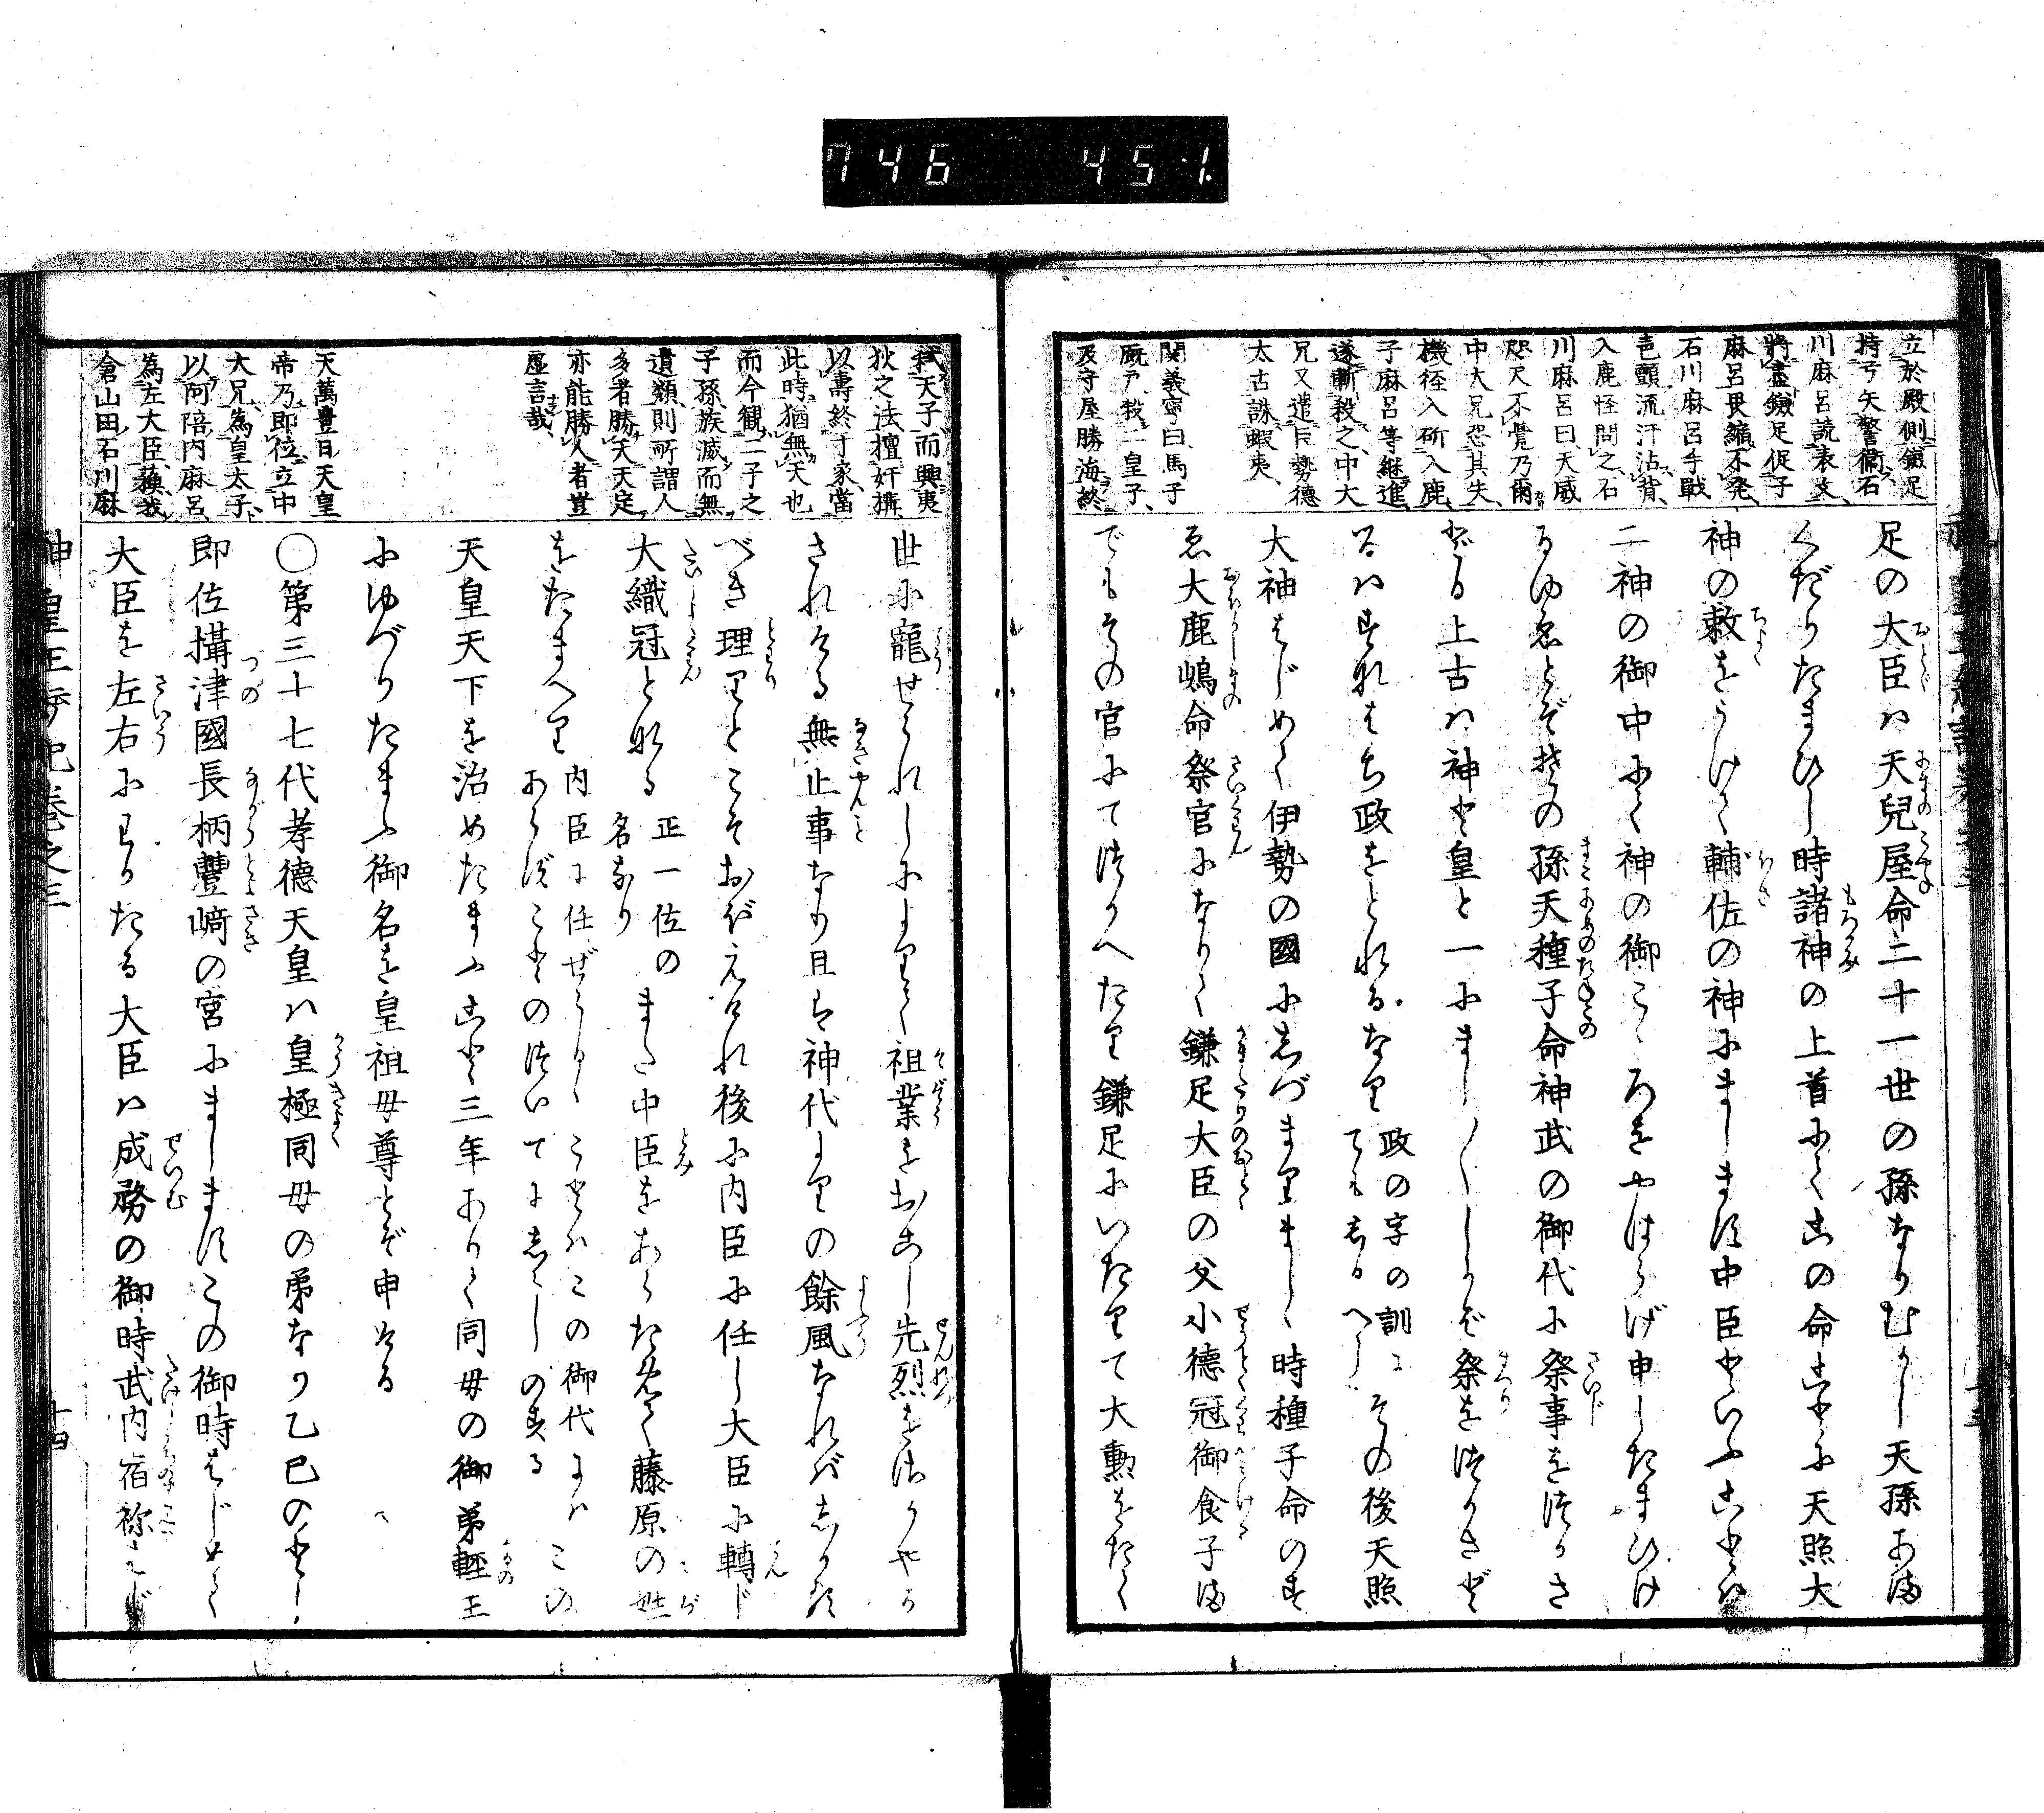 746 451.
立於殿側鎌足
持弓矢警衞石
川麻呂読表文
將盡鎌足促子
麻呂畏縮不発
石川麻呂手戰
色顫流汗沾背
入鹿怪問之石
川麻呂曰天威
咫尺不覺乃爾
中大兄恐其失
機径入斫入鹿
子麻呂等継進
遂斬殺之中大
兄又遣巨勢德
太古誅蝦夷
関義寧曰馬子
厩戸殺二皇子
及守屋勝海終
足の大臣ハ天兒屋命二十一世の孫なりむかし天孫あま
くだりたまひし時諸神の上首にてこの命ことに天照大
神の敕をうけて輔佐の神にまします中臣といふことハ
二神の御中にて神の御こゝろをやはらげ申したまひけ
るゆゑとぞその孫天種子命神武の御代に祭事をつかさ
どる上古ハ神と皇と一にまし〳〵しかバ祭をつかさど
るハすなはち政をとれるなり
政の字の訓に
てもしるへし
その後天照
大神はじめて伊勢の國にしづまりましゝ時種子命のす
ゑ大鹿嶋命祭官になりて鎌足大臣の父小德冠御食子ま
でもその官にてつかへたり鎌足にいたりて大勲をたて
弑天子而興夷
狄之法擅奸搆
以壽終于家當
此時猶無天也
而今観二子之
子孫族滅而無
遺類則所謂人
多者勝天天定
亦能勝人者豈
虚言哉
天萬豊日天皇
帝乃即位立中
大兄為皇太子
以阿陪内麻呂
為左大臣蘓我
倉山田石川麻
世に寵せられしによりて祖業をおこし先烈をさかやか
されける無止事なり且ハ神代よりの餘風なれバしかる
べき理りとこそおぼえ侍れ後に内臣に任し大臣に轉じ
大織冠となる
正一位の
名なり
また中臣をあらためて藤原の姓
をたまへり
内臣に任ぜらるゝことハこの御代にハ
あらずことのついてにしるしのする
この
天皇天下を治めたまふこと三年ありて同母の御弟軽王
にゆづりたまふ御名を皇祖母尊とぞ申ける
〇第三十七代孝德天皇ハ皇極同母の弟なり乙巳のとし
即位攝津國長柄豐﨑の宮にましますこの御時はじめて
大臣を左右にわかたる大臣ハ成務の御時武内宿祢はじ
十四